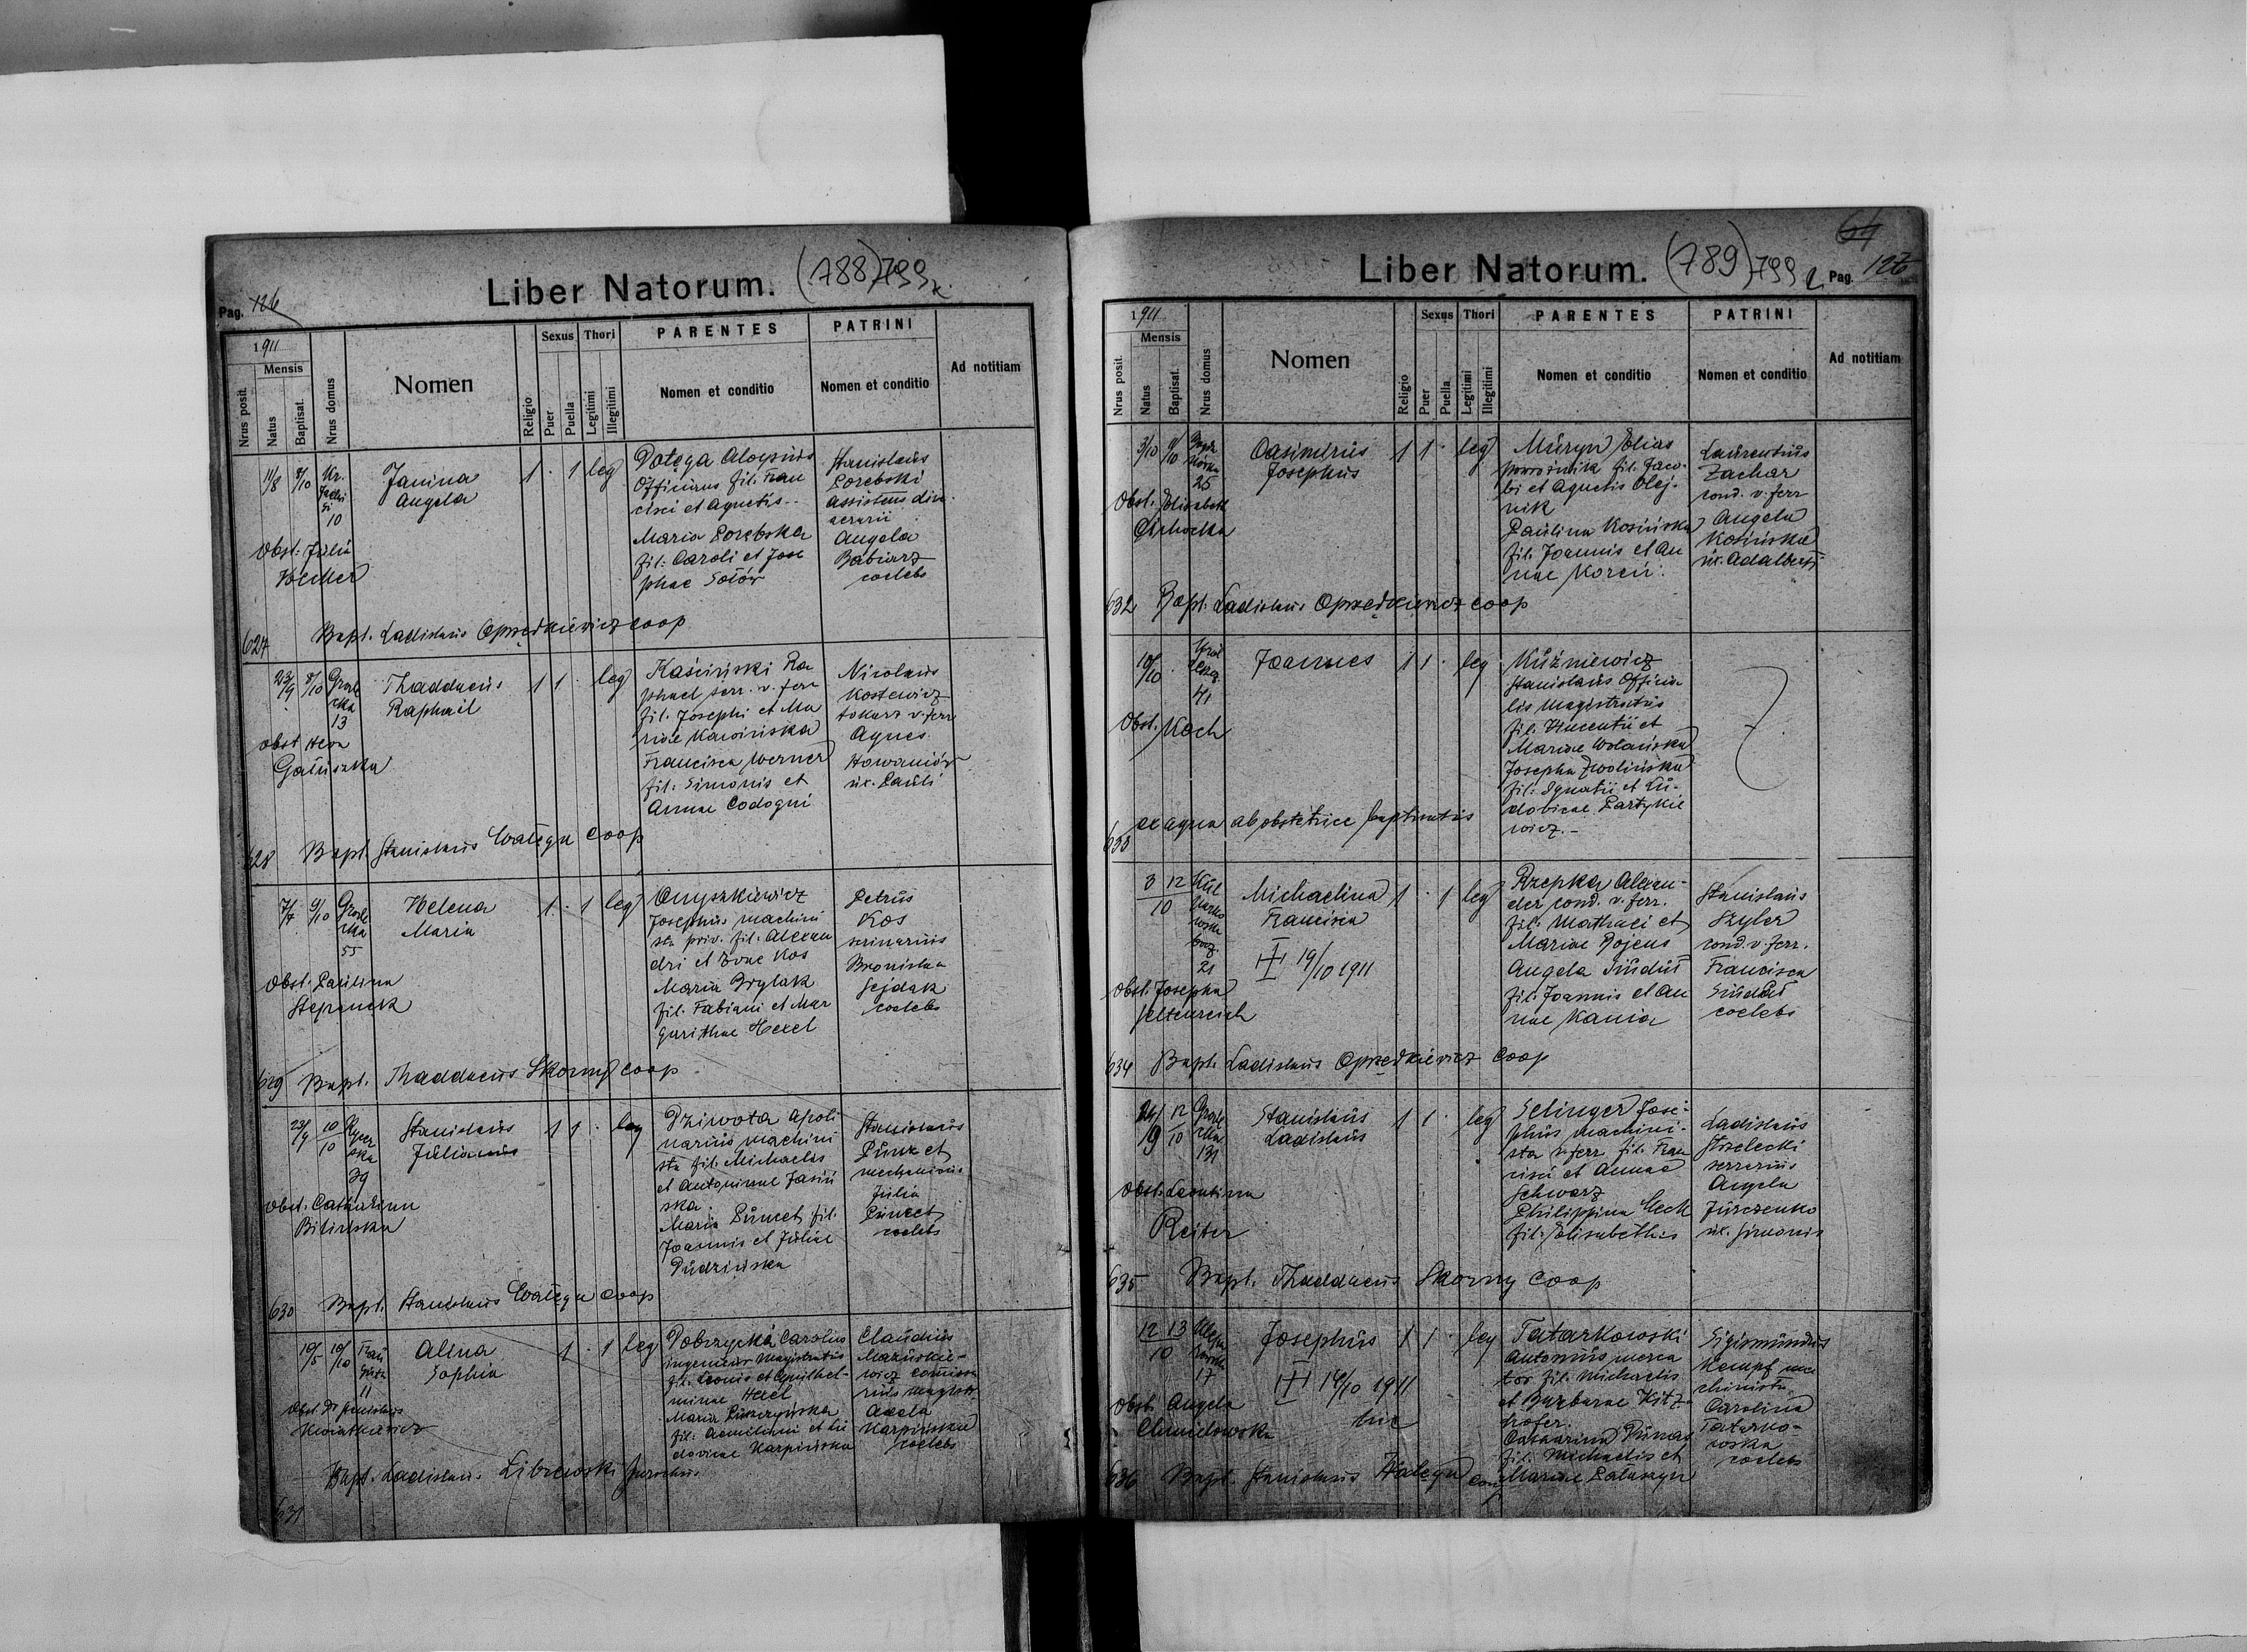 Pag. 126
Liber Natorum.
(788) 799
1911
Mensis
Nrus posit.
Natus
Baptisat.
Nrus domus
Nomen
Religio
Sexus
Puer
Puella
Thori
Legitimi
Illegitimi
PARENTES
Nomen et conditio
PATRINI
Nomen et conditio
Ad notitiam
11/8 8/10
10
Janina
Angela
1 · 1 leg
Potęga Aloysius
Officians fil. Fran
cisci et Agnetis
Maria Porębska
fil: Caroli et Jose
phae Sołów
Stanislaus
Porębski
assistens
aerarii
Angela
Babiarz
coelebs
Obst: Julia
627 Bapt. Ladislaus Oprzędkiewicz coop
23/9 8/10 Grode
cka
13
Thaddaeus
Raphael
1 1 · leg
Kawiński Ra
phael serr. v. ferr
fil. Josephi et Ma
riae Kawińska
Francisca Werner
fil: Simonis et
Annae Codogni
Nicolaus
Kostewicz
tokarz v. ferr
Agnes
ux. Pauli
Obst Heva
Gałuszka
628 Bapt. Stanislaus Wałęga coop
7/7 9/10 Grode
cka
55
Helena
Maria
1 · 1 leg
Onyszkiewicz
Josephus machini
sta priv. fil: Alexan
dri et Evae Kos
Maria Grylak
fil. Fabiani et Mar
garithae Hexel
Petrus
Kos
Bronislaa
Sejdak
coelebs
Obst. Paulina
Stepanek
629 Bapt. Thaddaeus Skorny coop
23/9 10/10
39
Stanislaus
Julianus
1 1 · leg
Dziwota Apoli
narius machini
sta fil. Michaelis
et Antoninae Jasiń
ska
Maria Puncet fil.
Joannis et Juliae
Pudzińska
Stanislaus
mechanicus
Julia
Puncet
coelebs
Obst. Catharina
Bilińska
630 Bapt. Stanislaus Wałęga coop
10/5 10/10
11
Alina
Sophia
1 · 1 leg
Dobrzycki Carolus
ingenieur Magistratus
fil. Leonis et Guilhel-
minae Hexel
Maria
fil: Aemiliani et Lu
dovicae Karpińska
Claudius
Mazurkie-
wicz
Adela
Karpińska
coelebs
Obst. Dr
Kwiatkiewicz
Bapt. Ladislaus Librewski parochus
631
Liber Natorum.
(789) 799
64
Pag. 126
1911
Mensis
Nrus posit.
Natus
Baptisat.
Nrus domus
Nomen
Religio
Sexus
Puer
Puella
Thori
Legitimi
Illegitimi
PARENTES
Nomen et conditio
PATRINI
Nomen et conditio
Ad notitiam
3/10 11/10
25
Casimirus
Josephus
1 1 · leg
Muryn Elias
Powroźnik fil. Jaco-
bi et Agnetis Olej-
nik
Paulina Kosińska
fil: Joannis et An
nae Korcii
Laurentius
Zachar
cond. v. ferr
Angela
Kosińska
ux. Adalberti
Obst: Elisabeth
Cichocka
632 Bapt. Ladislaus Oprzędkiewicz coop
10/10
41
Joannes
1 1 · leg
Kuźniewicz
Stanislaus Officia
lis Magistratus
fil. Vincentii et
Mariae Wolańska
Josepha Zwolińska
fil: Ignatii et Lu-
dovicae Partykie
wicz.-
Obst. Koch
633 ex aqua ab obstetrice baptisatus
3 12/10
21
Michaelina
Francisca
1 · 1 leg
19/10 1911
Rzepka Alexan-
der cond. v. ferr.
fil: Mathaei et
Mariae Bojcus
Angela Siudut
fil: Joannis et An
nae Kania
Stanislaus
Szyler
cond. v. ferr.
Francisca
Siudut
coelebs
Obst. Josepha
Seltenreich
634 Bapt. Ladislaus Oprzędkiewicz coop
24/9 12/10 Grode
cka
131
Stanislaus
Ladislaus
1 1 · leg
Selinger Jose-
phus machini-
sta v. ferr. fil. Fran
cisci et Annae
Schwarz
Philippina Mech
fil. Elisabethis
Ladislaus
Strzelecki
serrarius
Angela
Jurczenko
ux. Simonis
Obst. Leontina
Reiter
635 Bapt. Thaddaeus Skorny coop
12 13/10
17
Josephus
1 1 · leg
14/10 1911
hic
Tatarkowski
Antonius merca
tor fil. Michaelis
et Barbarae Kitz-
hofer.
Catharina Dunas
fil. Michaelis et
Mariae Pałaszyn
Sigismundus
Kempf ma
chinista
Carolina
Tatarko-
wska
coelebs
Obst. Angela
Chmielowska
636 Bapt. Stanislaus Wałęga coop